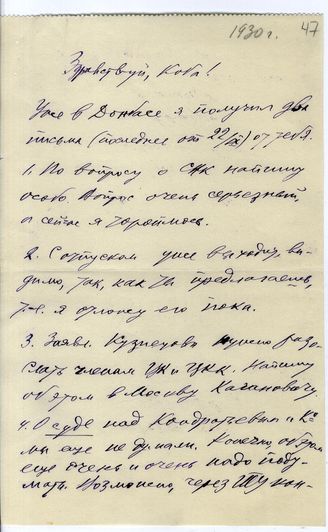 1930 г. 47
Здравствуй, Коба!
Уже в Донбасе я получил два
письма (последнее от 22/IX) от тебя.
1. По вопросу о СНК напишу
особо. Вопрос очень серьезный,
а сейчас я тороплюсь.
2. С отпуском уже выходит, ви-
димо, так, как ты предлагаешь,
т.-е. я отложу его пока.
3. Заявл. Кузнецова нужно разо-
слать членам ЦК и ЦКК. Напишу
об этом в Москву Кагановичу.
4. О суде над Кондратьевым и Ко
мы еще не думали. Конечно, об этом
еще очень и очень надо поду-
мать. Возможно, через ГПУ кон-